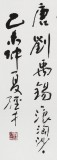 唐劉禹錫浪淘沙
乙未仲夏经千